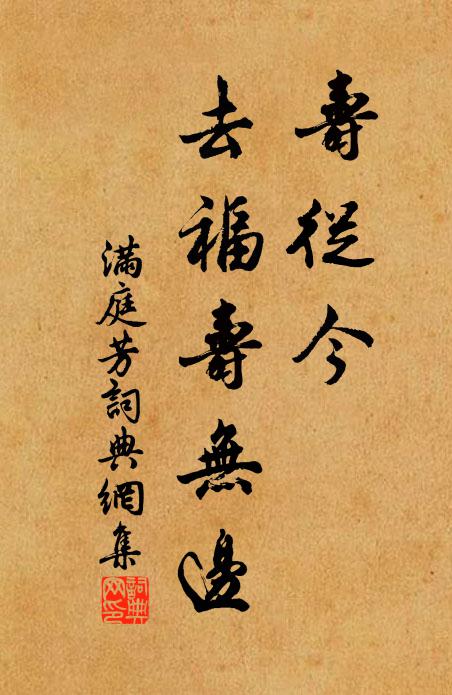 壽從今
去福壽無邊
滿庭芳詞典網集
詞典
网印